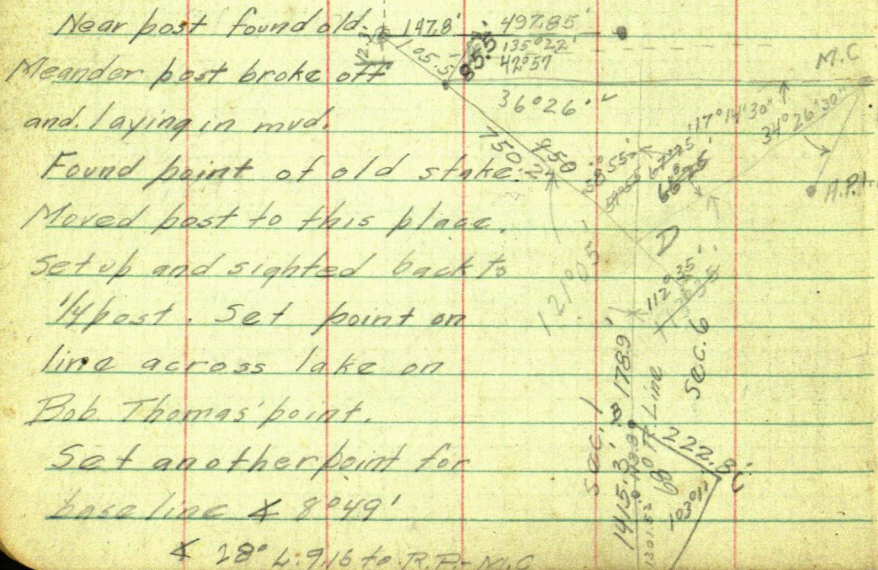 Near post found old.
Meander post broke off
and laying in mud.
Found point of old stake.
Moved post to this place.
Set up and sighted back to
1/4 post. Set point on
line across lake on
Bob Thomas' point.
Set another point for
base line ∡ 8°49'
∡ 28°
to R.P.-M.C
147.8'
497.85'
85.5'
135°22'
42°57
36°26'
M.C
17°14'30"
34°26'30"
750
450
121°05'
D
112°35'
Sec. 6
Sec. 1
1415.3
1789'
Line
222.8'
C
103°11'